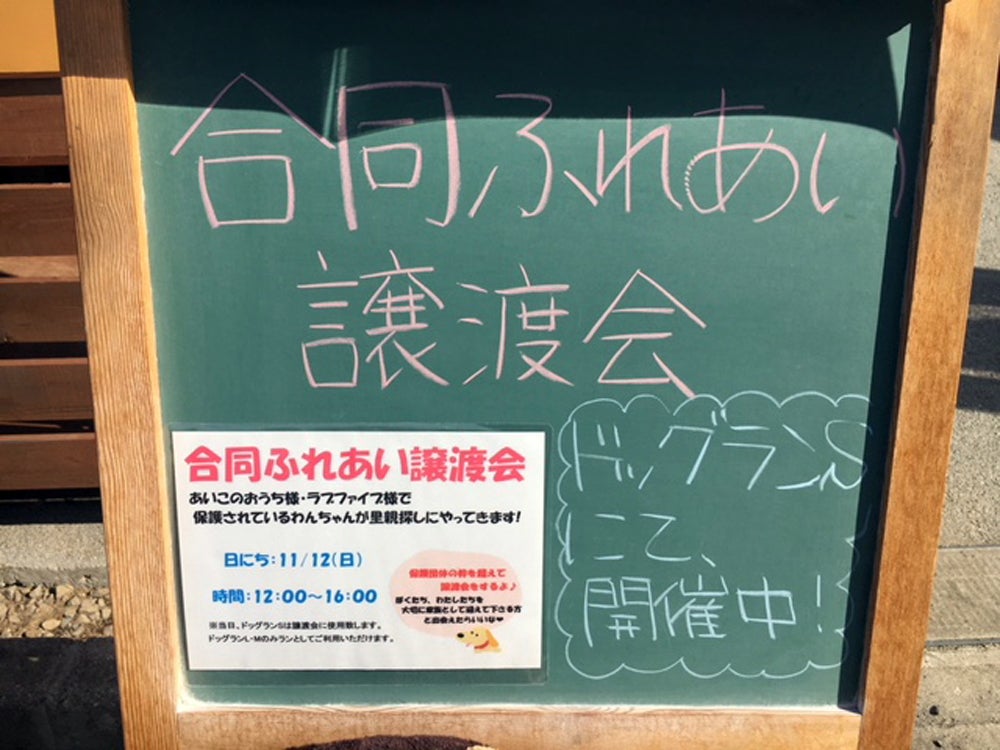 合同ふれあい
譲渡会
合同ふれあい譲渡会
あいこのおうち様・ラブファイブ様で
保護されているわんちゃんが里親探しにやってきます!
日にち:11/12(日)
時間:12:00～16:00
※当日、ドッグランSは譲渡会に使用致します。
ドッグランL・Mのみランとしてご利用いただけます。
保護団体の枠を超えて
譲渡会をするよ♪
ぼくたち、わたしたちを
大切に家族として迎えて下さる方
と出会えたらいいな♥
ドッグランS
にて、
開催中!